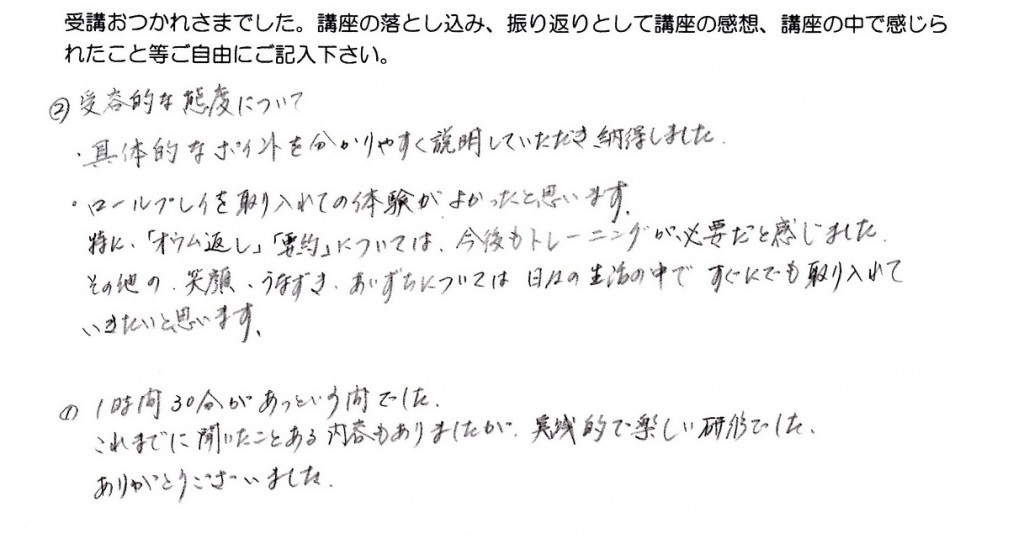 受講おつかれさまでした。講座の落とし込み、振り返りとして講座の感想、講座の中で感じら
れたこと等ご自由にご記入下さい。
② 受容的な態度について
・具体的なポイントを分かりやすく説明していただき納得しました.
・ロールプレイを取り入れての体験がよかったと思います.
特に、「オウム返し」「要約」については、今後もトレーニングが必要だと感じました.
その他の、笑顔、うなずき、あいづちについては日々の生活の中ですぐにでも取り入れて
いきたいと思います.
① 1時間30分があっという間でした.
これまでに聞いたことある内容もありましたが、実践的で楽しい研修でした、
ありがとうございました.